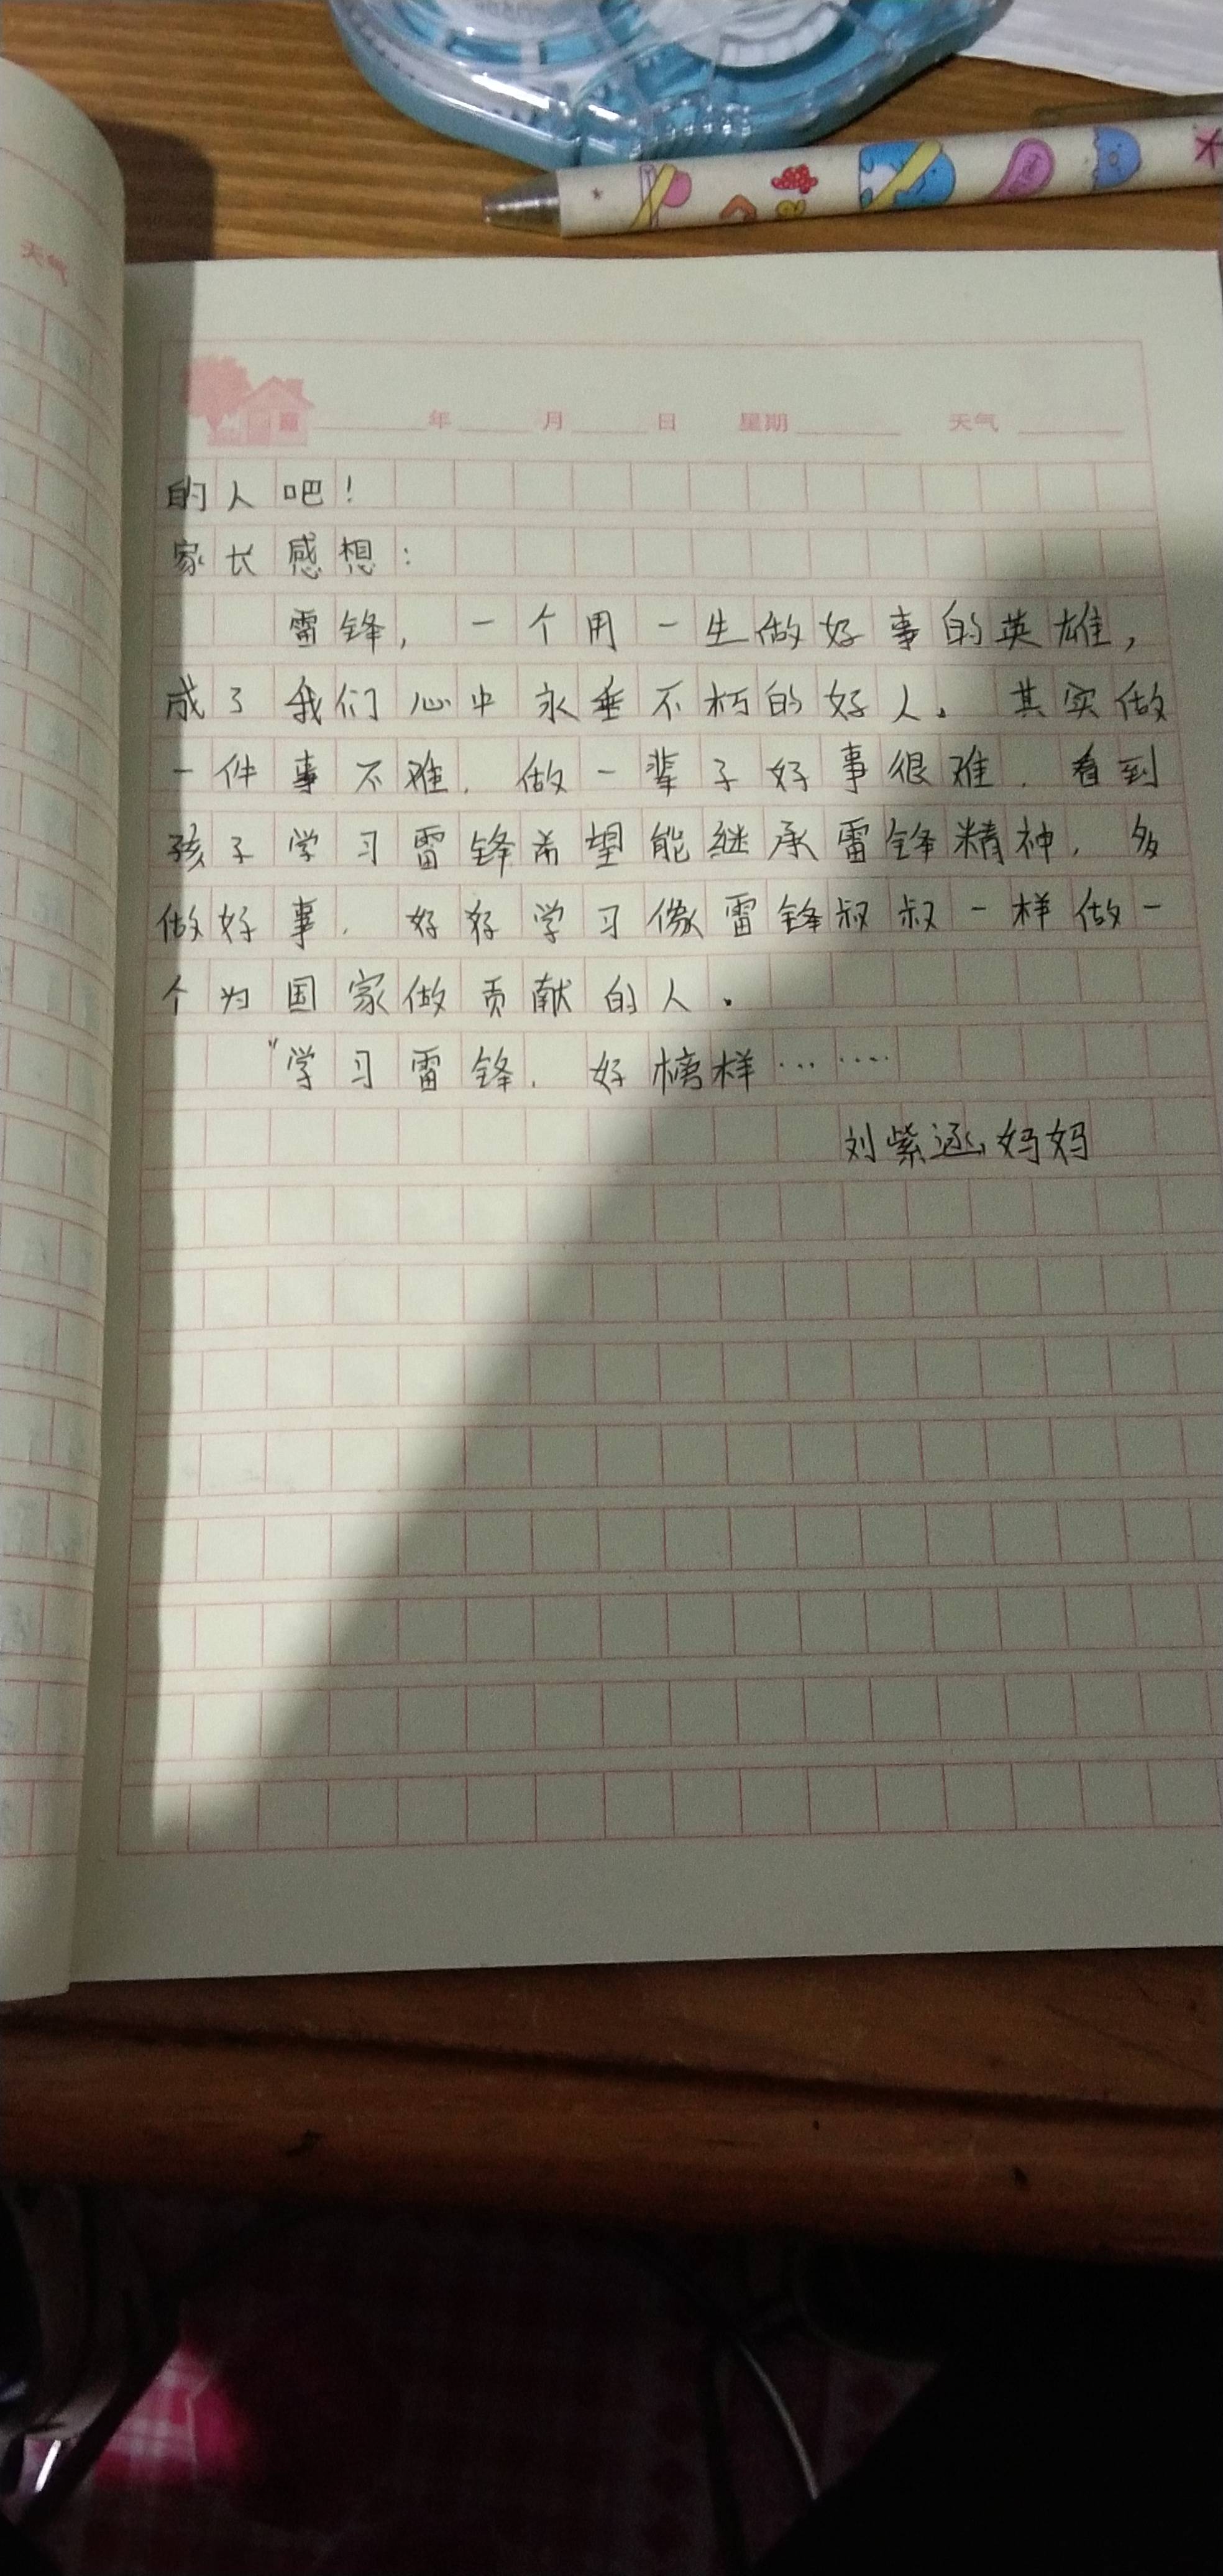 天气
年 月 日 星期 天气
的人吧！
家长感想：
雷锋，一个用一生做好事的英雄，
成了我们心中永垂不朽的好人。其实做
一件事不难，做一辈子好事很难，看到
孩子学习雷锋希望能继承雷锋精神，多
做好事，好好学习像雷锋叔叔一样做一
个为国家做贡献的人。
"学习雷锋，好榜样……
刘紫涵妈妈